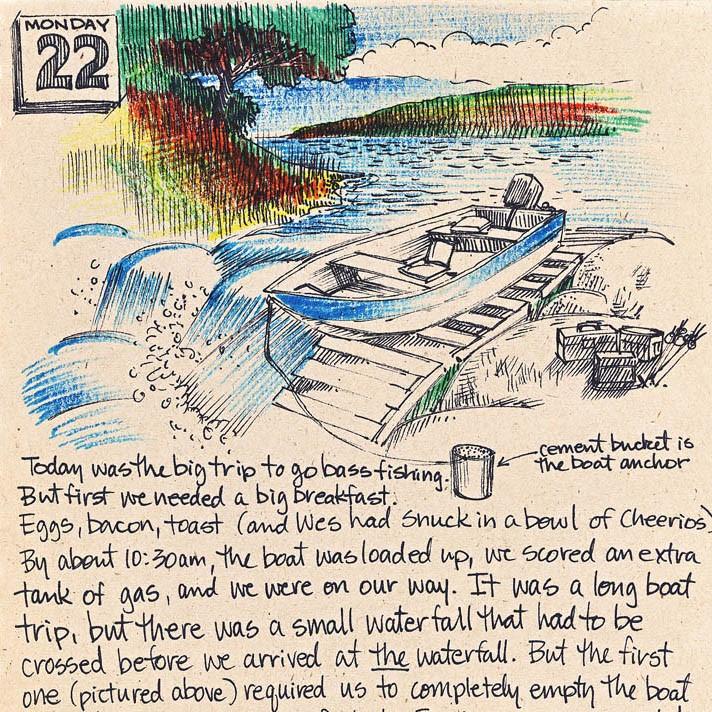 MONDAY
22
cement bucket is
the boat anchor
Today was the big trip to go bass fishing.
But first we needed a big breakfast.
Eggs, bacon, toast (and Wes had snuck in a bowl of Cheerios)
By about 10:30am, the boat was loaded up, we scored an extra
tank of gas, and we were on our way. It was a long boat
trip, but there was a small waterfall that had to be
crossed before we arrived at the waterfall. But the first
one (pictured above) required us to completely empty the boat